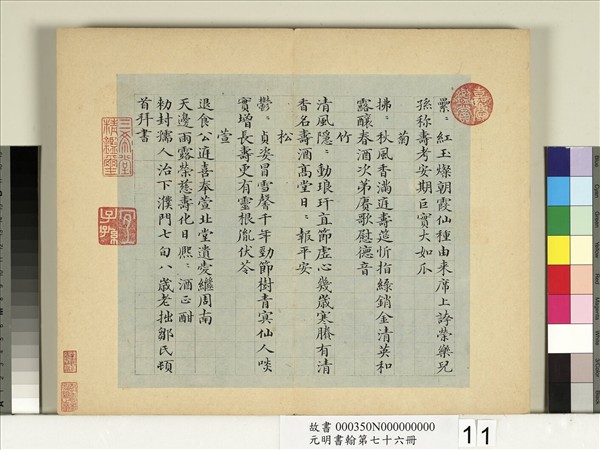 纍〻紅玉燦朝霞仙種由来席上誇榮樂兒
孫称壽考安期巨實大如瓜
菊
拂〻秋風香滿逕壽筵忻指綠銷金清英和
露釀春酒次第賡歌慰德音
竹
清風隱〻動琅玕直節虛心幾歲寒勝有清
香名壽酒高堂日〻報平安
松
鬱〻貞姿冒雪馨千年勁節樹青冥仙人啖
實增長壽更有靈根胤伏苓
萱
退食公逕喜奉萱北堂遺愛繼周南
天邊雨露榮慈壽化日熙〻酒正酣
勅封孺人治下濮門七旬八歲老拙鄒氏頓
首拜書
嘉慶鑑賞
三希堂精鑑璽
宜子孫
故書 000350N000000000
元明書翰第七十六冊
11